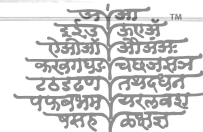 अ आ TM
इईउ ऊएऍ
ऐओऑ औअंअः
कखगघङ चछजझञ
टठडढण तथदधन
पफबभम यरलवश
षसह ळक्षज्ञ